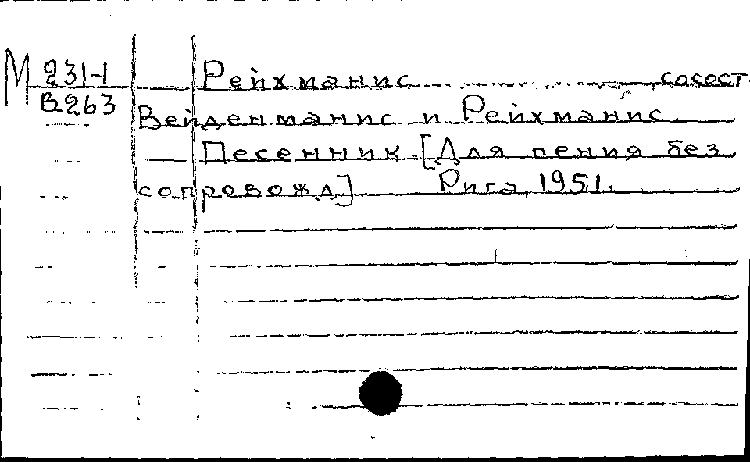 М 231-1 Рейхманис сосост
В263 Вейденманис и Рейхманис
Песенник. [Для пения без
сопровожд] Рига, 1951.